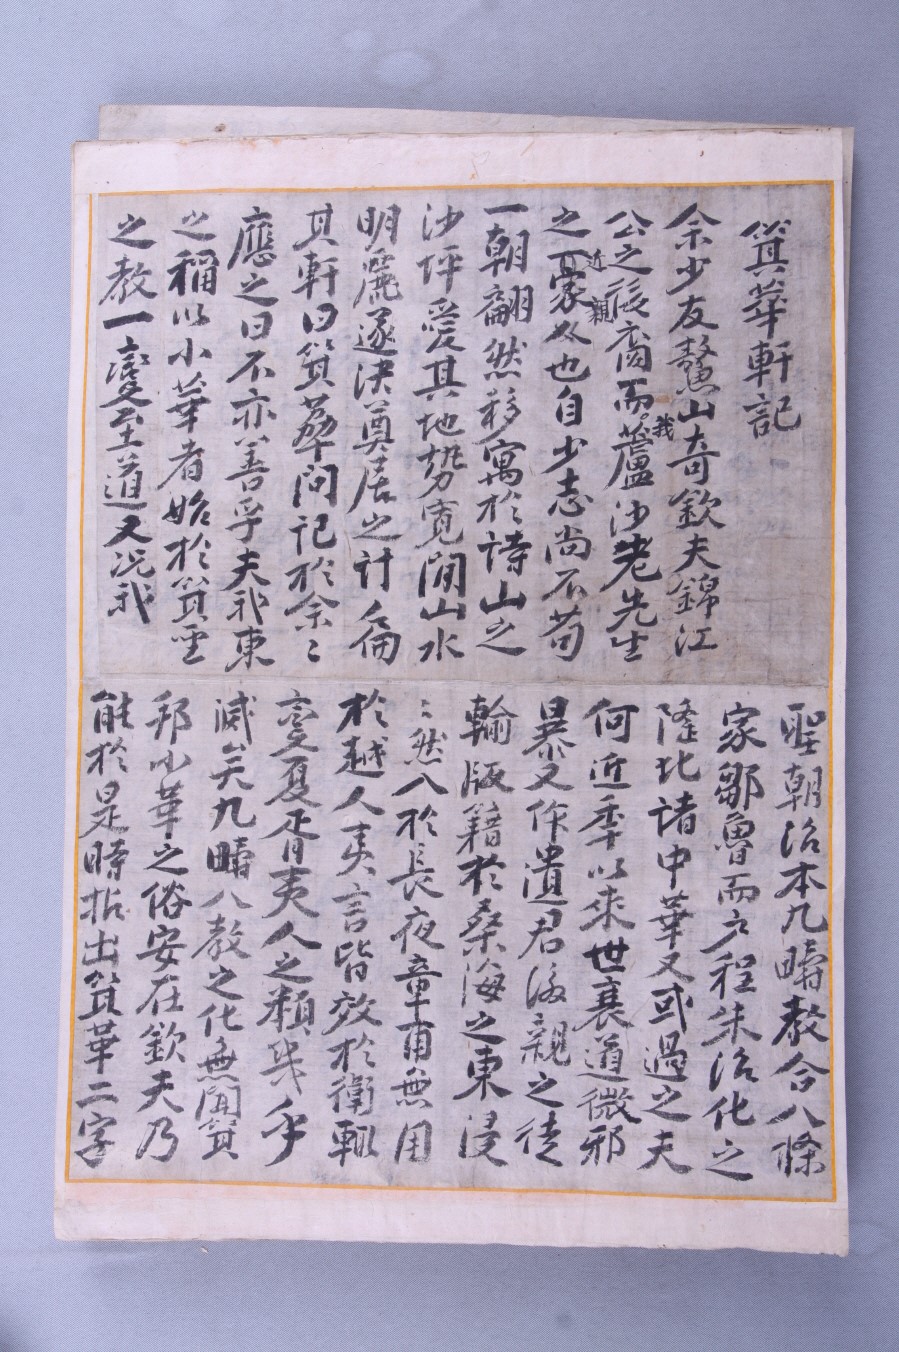 箕華軒記
余少友鰲山奇欽夫錦江
公之後裔而我蘆沙老先生
之近親家々也自少志尚不苟
一朝翩然移寓於詩山之
沙坪愛其地勢寬閒山水
明麗遂決奠居之計倫
其軒曰箕華問記於余〻
應之曰不亦善乎夫我東
之稱以小華者始於箕聖
之教一變至道又況我
聖朝治本九疇教合八條
家鄒魯而戶程朱治化之
隆比諸中華又或過之夫
何近季以來世衰道微邪
暴又作遺君後親之徒
輸版籍於桑海之東浸
〻然入於長夜章甫無用
於越人夷言皆效於衛輒
變夏胥夷人之類幾乎
滅矣九疇八教之化無聞箕
邦小華之俗安在欽夫乃
能於是時拈出箕華二字